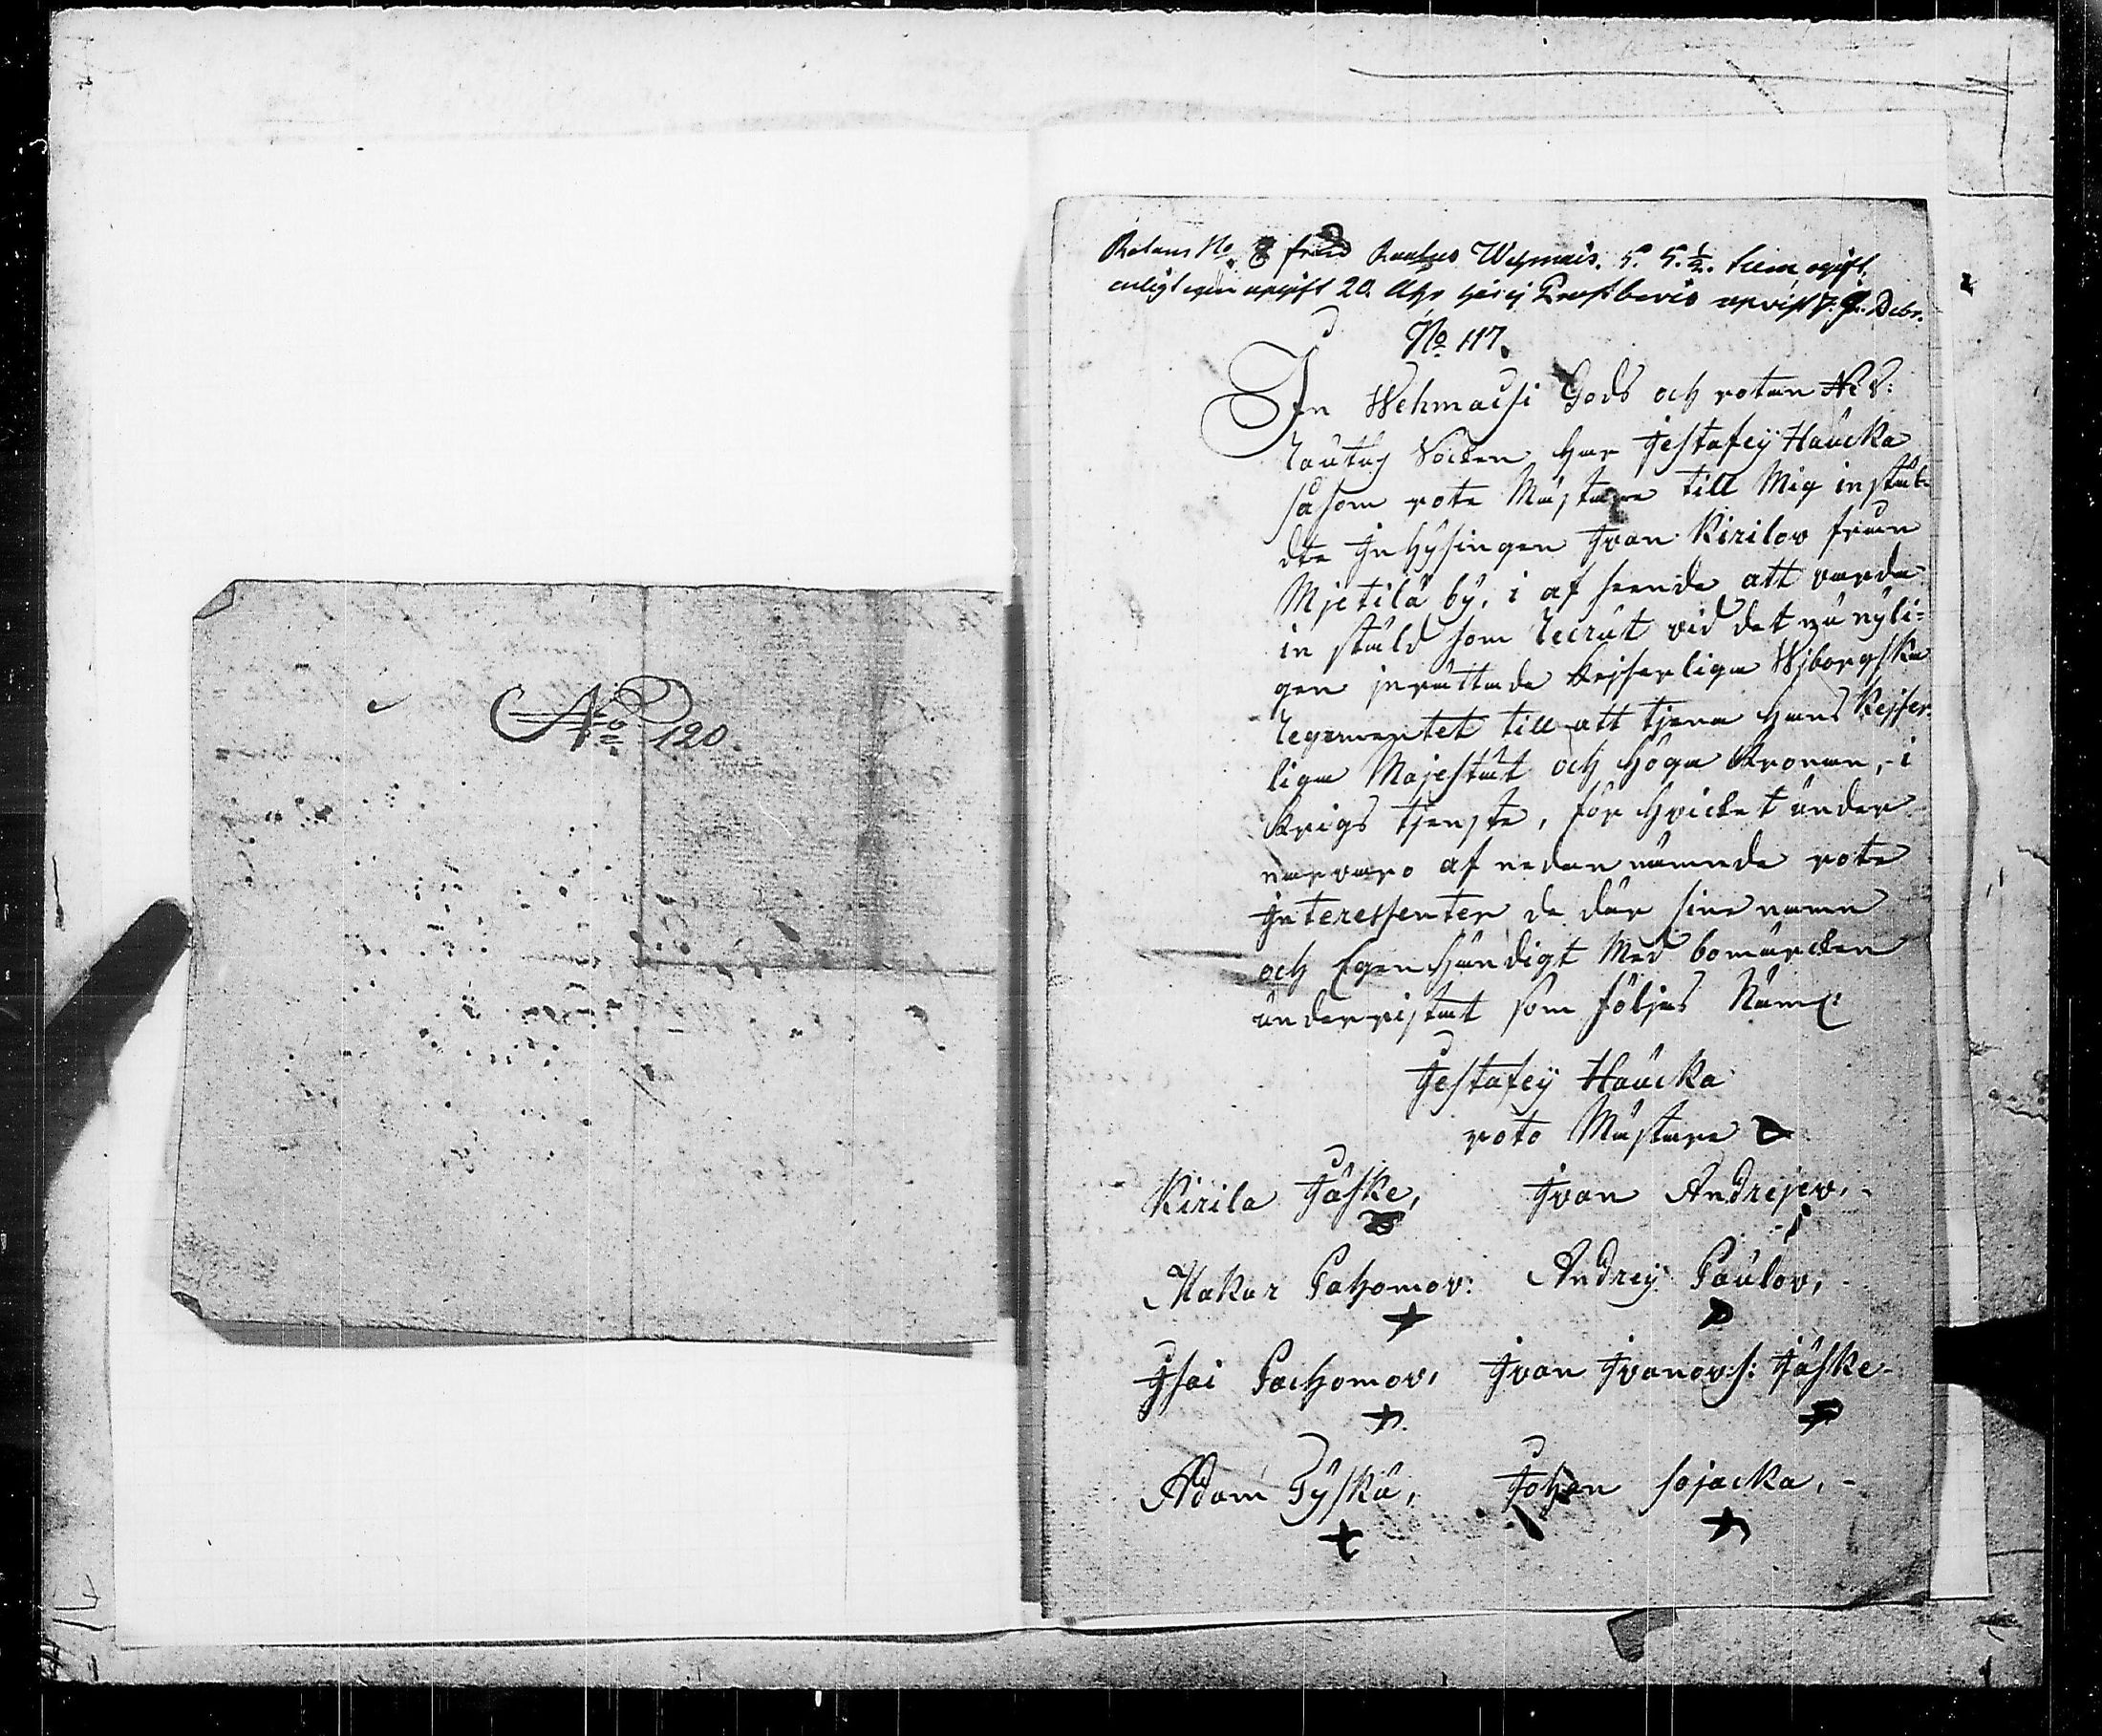 No 120.
Rotans No 8 från Rautus Wehmais. 5. 5.½. tum, ogift,
enligt egen uppgift 20. Åhr
No 117.
In Wehmaisi Gods och rotan No 8:
Rautus Socken har Jestafeij Haucka
såsom rote Mästare till Mig instäl-
dte Inhysingen Ivan Kirilov från
Mjetilä by, i afseende att varda
instäld som Recrut vid det nu nyli-
gen inrättade Kejserliga Wiborgska
Regementet till att tjena Hans Kejser-
liga Majestät och höga Kronan, i
Krigs tjenste, för hvicket under
närvaro af nedannämnde rote
Interessenter de där sine namn
och Egenhändigt Med bomärcken
underristat som följes Näml:
Jestafeij Haucka
rote Mästare
Kirila Jäske, Ivan Andrejev.
Makar Pahomov: Andrej Paulov,
Isai Pachomov, Ivan Ivanovs: Jäske
Adam Tyskä, Johan Sojacka,